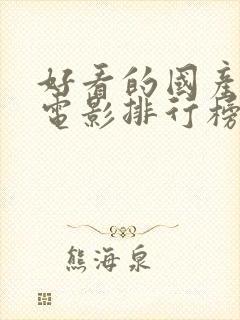 好看的國產
電影排行榜
熊海泉